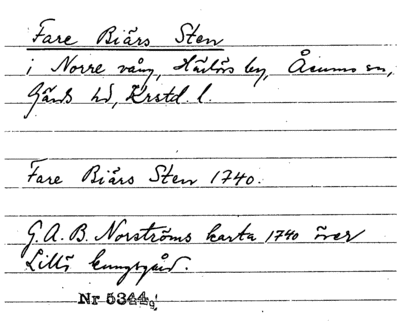 Fare Biärs Sten
i Norre vång, Härlövs by, Åsums sn,
Gärds hd, Krstd. l.
Fare Biärs Sten 1740.
G. A. B. Norströms karta 1740 över
Lillö kungsgård.
Nr 5344